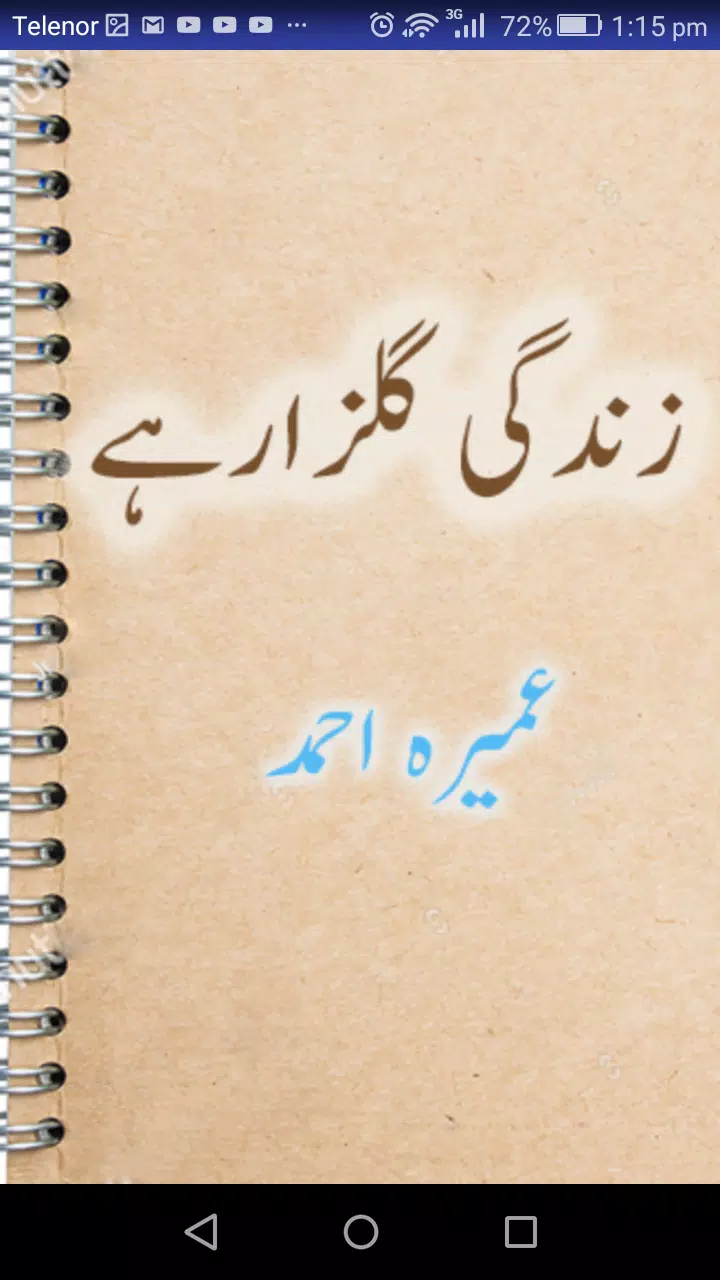 Telenor 3G 72% 1:15 pm
زندگی گلزار ہے
عمیرہ احمد